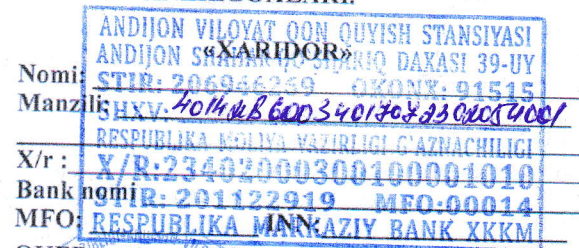 ANDIJON VILOYAT QON QUYISH STANSIYASI
«XARIDOR»
ANDIJON SHAHAR DAXASI 39-UY
Nomi: STIR: 206946269 OKONX: 91515
Manzili: SHXV:
RESPUBLIKA MOLIYA VAZIRLIGI G'AZNACHILIGI
X/r : X/R:23402000300100001010
Bank nomi STIR: 201122919 MFO:00014
MFO: INN:
RESPUBLIKA MARKAZIY BANK XKKM